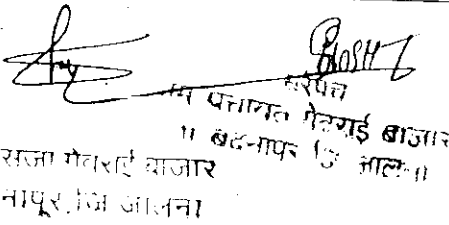 सरपंच
पंचायत गेवराई बाजार
बदनापूर जि जालना
सजा गेवराई बाजार
नापूर, जि जालना